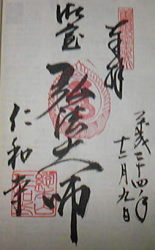 奉拝
平成二十四年
十二月九日
御室
弘法大師
仁和寺